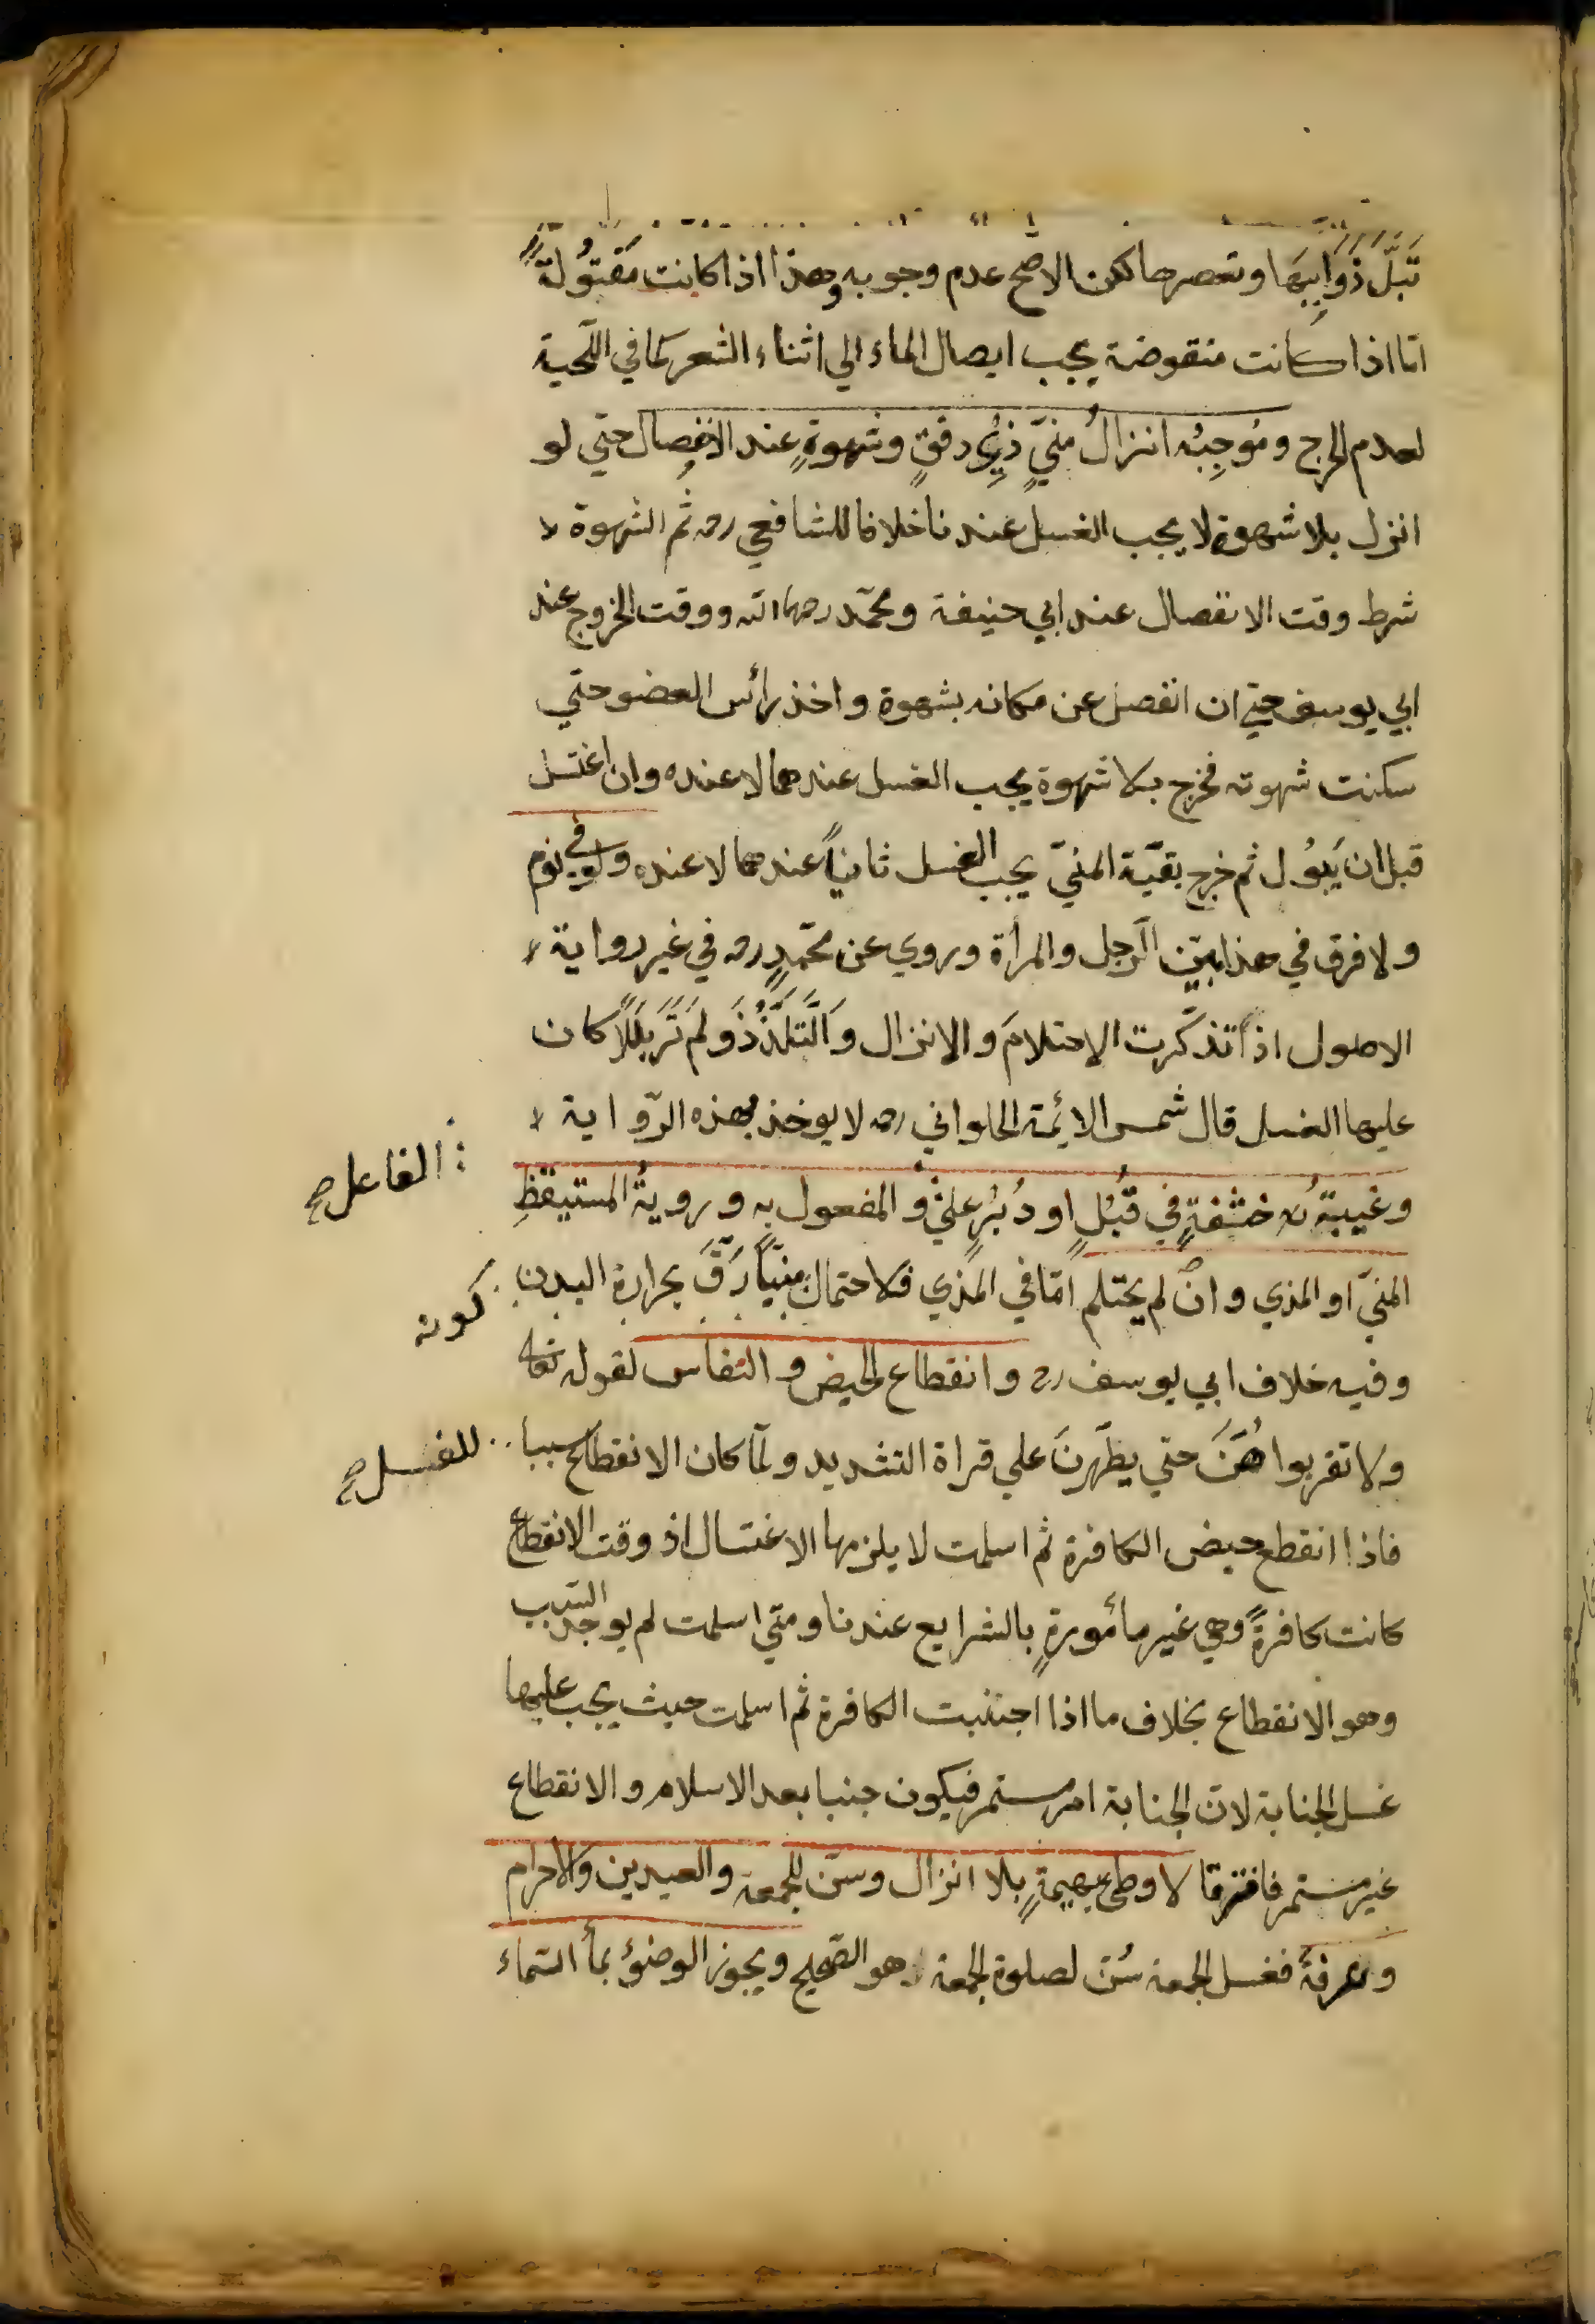 تَبُلَّ ذَوَايِبَهَا وتعصرها لكن الاصح عدم وجوبه وهذا اذا كانت مَفْتُولَةً
امّا اذا كانت منقوضة يجب ايصال الماء الي اثناء الشعر كما في اللّحية
لعدم الحرج ومُوجِبُه انزالُ منيٍّ ذِي دفقٍ وشهوةٍ عند الانفِصال حتي لو
انزل بلا شهوة لا يجب الغسل عندنا خلافا للشافعي رحه ثم الشهوة
شرط وقت الانفصال عند ابي حنيفة ومحمّد رحهما الله ووقت الخروج عند
ابي يوسف حتي ان انفصل عن مكانه بشهوة واخذ رأس العضو حتي
سكنت شهوته فخرج بلا شهوة يجب الغسل عندهما لا عنده وان اغتسل
قبل ان يَبُول ثم خرج بقيّة المنيّ يجب الغسل ثانياً عندهما لا عنده ولو في نوم
ولا فرق في هذا بين الرّجل والمرأة وروي عن محمّدٍ رحه في غير رواية
الاصول اذا تذكّرت الاحتلامَ والانزال وَالتَّلَذُّذَ ولَم تَرَ بَلَلًا كان
عليها الغسل قال شمس الائمة الحلواني رحه لا يوخذ بهذه الرّواية
وغيبةُ حشفةٍ في قُبُلٍ او دُبُرٍ علي و المفعول به ورويةُ المستيقظِ
الفاعل صح
المنيّ او المذي وان لم يحتلم امّا في المذي فلاحتمال منيّاً رَقَّ بحرارة البدن
كونه
وفيه خلاف ابي يوسف رح وانقطاع الحيض و النفاس لقوله تعالي
ولا تقربوا هُنَّ حتي يطّهرنَ علي قراة التشديد ولمّا كان الانقطاع سببا
للغسل صح
فاذا انقطع حيض الكافرة ثم اسلمت لا يلزمها الاغتسال اذ وقت الانقطاع
كانت كافرةً وهي غير مأمورةٍ بالشرايع عندنا ومتي اسلمت لم يوجد السّبب
وهو الانقطاع بخلاف ما اذا اجنبت الكافرة ثم اسلمت حيث يجب عليها
غسل الجنابة لانّ الجنابة امر مستمر فيكون جنبا بعد الاسلام والانقطاع
غير مستمر فافترقا لا وطئ بهيمةٍ بلا انزال وسنّ للجمعة والعيدين والاحرام
وعرفة فغسل الجمعة سُنّ لصلوة الجمعة هو الصّحيح ويجوز الوضوُ بماء السّماء